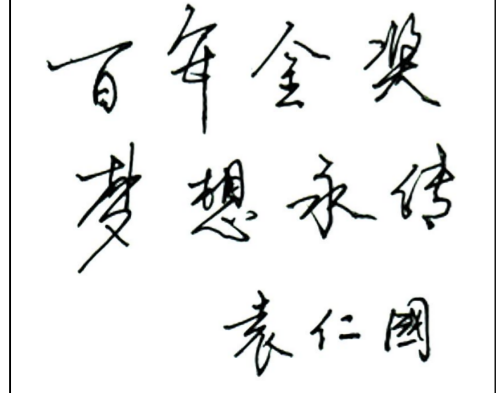 百年金奖
梦想永传
袁仁國